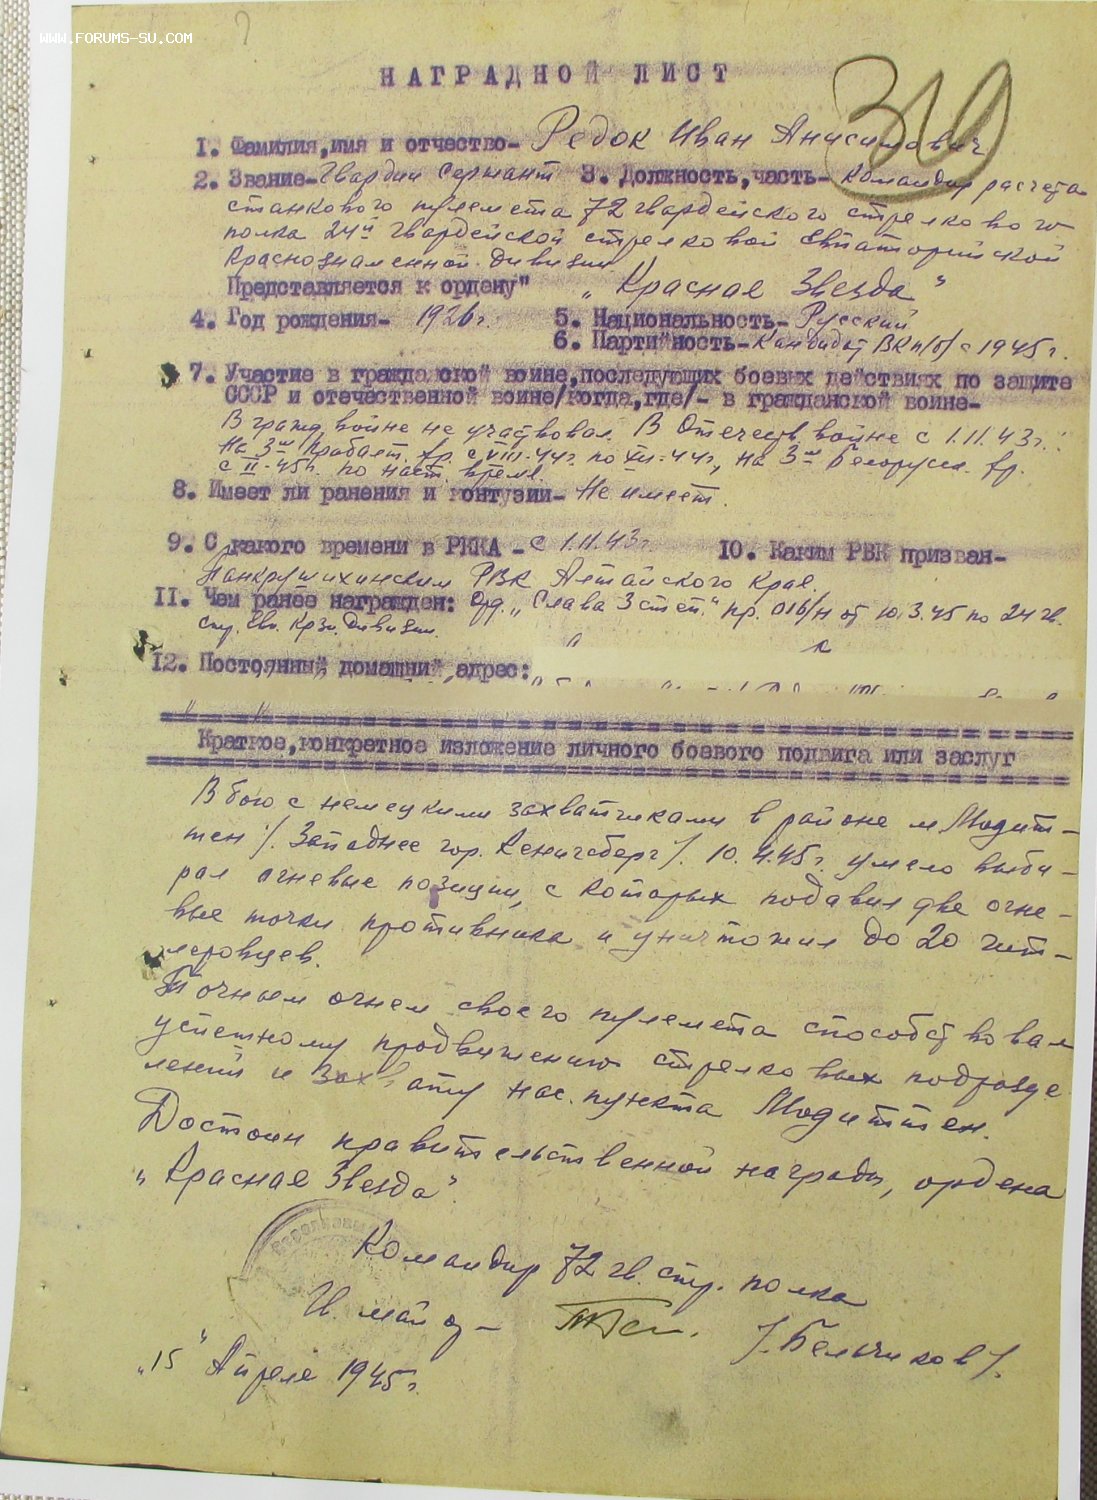 WWW.FORUMS-SU.COM
НАГРАДНОЙ ЛИСТ
1. Фамилия,имя и отчество- Редок Иван Анисимович
2. Звание- Гвардии Сержант 3. Должность,часть- Командир расчета
станкового пулемета 72 гвардейского стрелкового
полка 24й гвардейской стрелковой Евпаторийской
Краснознаменной дивизии
Представляется к ордену" „Красная Звезда"
4. Год рождения- 1926г. 5. Национальность- Русский
6. Партийность- Кандидат ВКП/б/ с 1945г.
7. Участие в гражданской воине,последующих боевых действиях по защите
СССР и отечественной воине/когда,где/- в гражданской воине-
В гражд. войне не участвовал. В Отечеств. войне с 1.11.43г.:
На 3м Прибалт. фр. с VIII-44г. по XII-44г., на 3м Белорусск. фр.
с II-45г. по наст. время.
8. Имеет ли ранения и контузии- Не имеет.
9. С какого времени в РККА - с 1.11.43г. 10. Каким РВК призван-
Панкрушихинским РВК Алтайского Края
11. Чем ранее награжден: орд. „Слава 3 степ." пр. 016/н от 10.3.45 по 24 гв.
стр. Евп. Крзн. Дивизии.
12. Постоянный домашний адрес:
Краткое,конкретное изложение личного боевого подвига или заслуг
В бою с немецкими захватчиками в районе м Модит-
тен /. Западнее гор. Кенигсберг/. 10.4.45г. умело выби-
рал огневые позиции, с которых подавил две огне-
вые точки противника и уничтожил до 20 гит-
леровцев.
Точным огнем своего пулемета способствовал
успешному продвижению стрелковых подразде
лений и захвату нас. пункта Модиттен.
Достоин правительственной награды, ордена
„Красная Звезда".
Командир 72 гв. стр. полка
Гв. майор - /. Бельчиков /.
„15" Апреля 1945г.